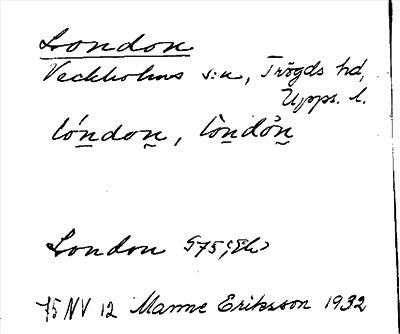 London
Veckholms s:n, Trögds hd,
Upps. l.
London 575; Ek
75 NV 12 Manne Eriksson 1932